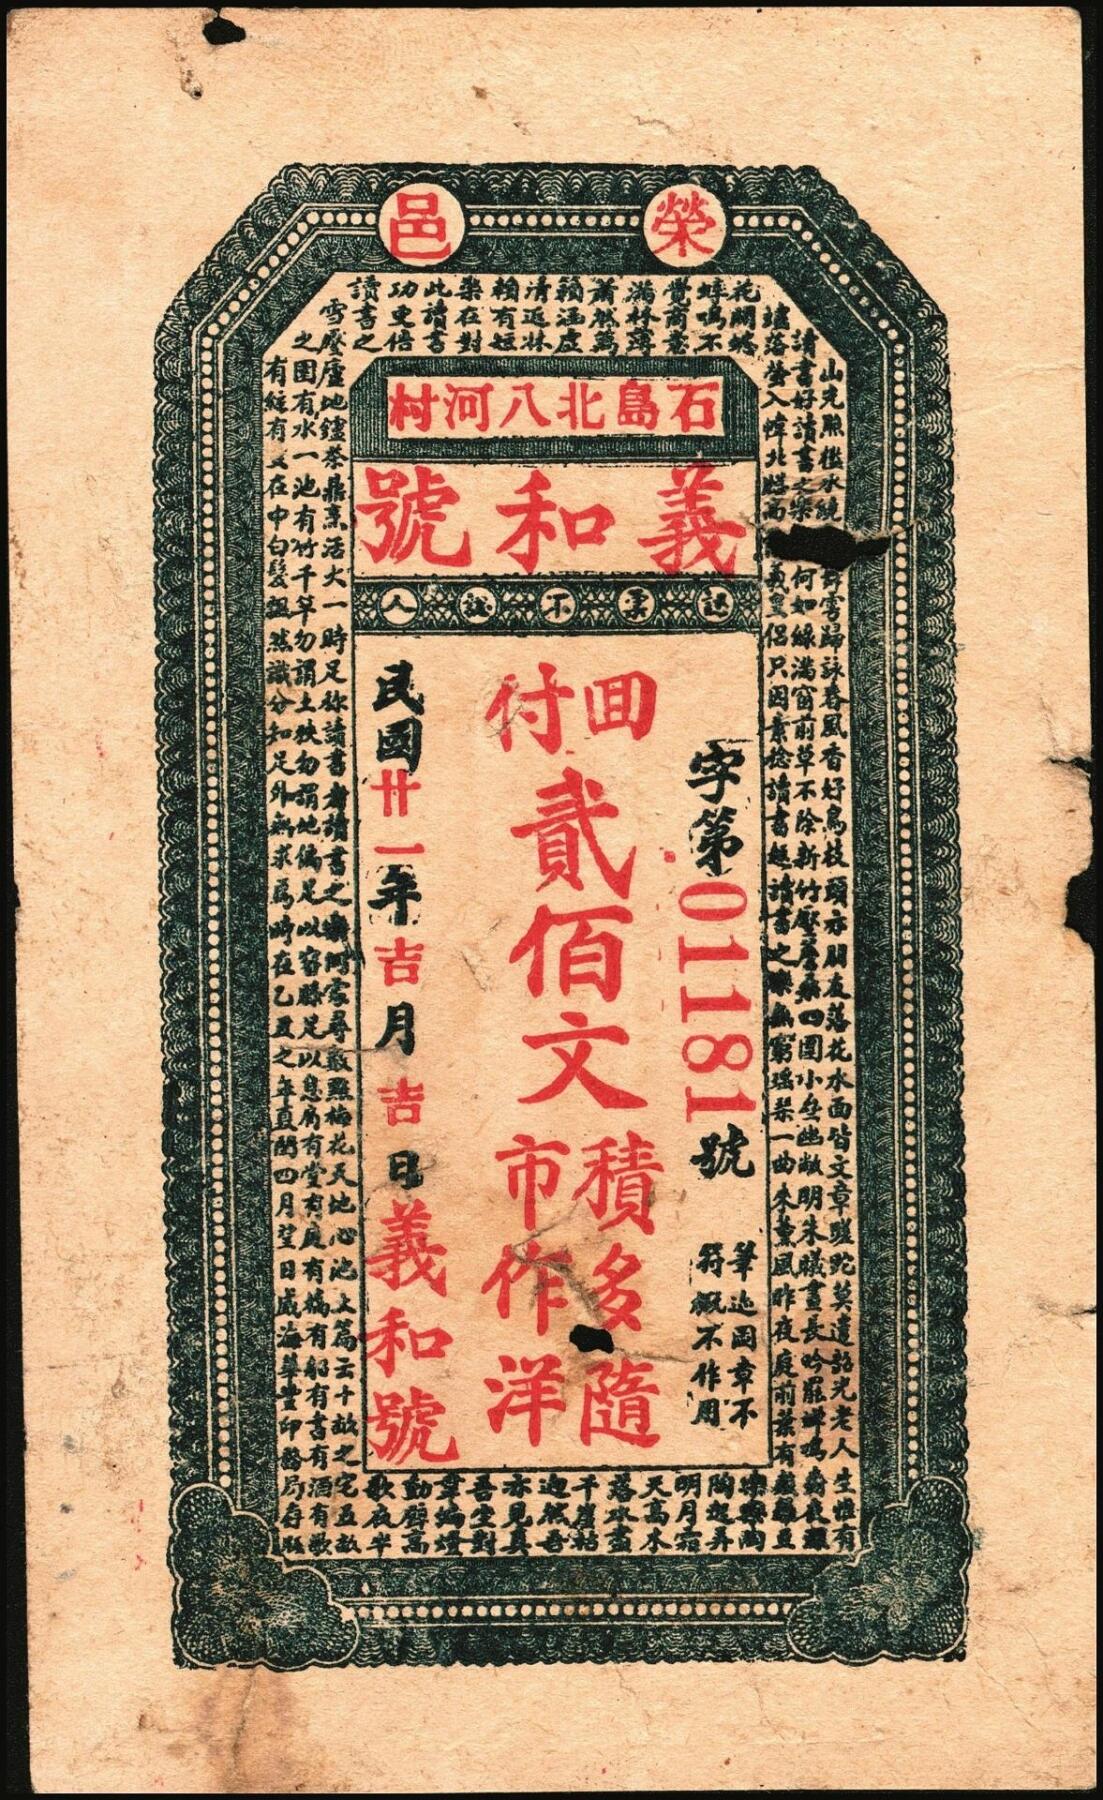 榮邑
石島北八河村
義和號
認票不認人
字第01181號
筆迹圖章不
符概不作用
回付
貳佰文
積多隨
市作洋
民國廿一年吉月吉日義和號
山光照檻水繞
歸詠春風香好鳥枝頭亦朋友落花水面皆文章蹉跎莫遣韶光老人生惟有
讀書好讀書之樂
何如綠滿窗前草不除新竹壓簷桑四圍小齋幽敞明朱曦晝長吟罷蟬鳴
落螢入幃北牕高
羲皇侶只因素稔讀書趣讀書之樂無窮瑤琴一曲來薰風昨夜庭前葉有聲
花開蟋
蟀鳴不
覺商意
滿林薄
蕭然萬
籟涵虛
清
賴有短
檠在對
此讀書
功更倍
讀書之
樂樂陶
陶起弄
明月霜
天高木
落水盡
千崖枯
迥然吾
亦見真
吾坐對
韋編燈
動壁高
歌夜半
雪壓廬地爐茶鼎烹活火一時足
讀書者讀書之樂何處尋數點梅花天地心池上篇云十畝之宅五畝
之園有水一池有竹千竿勿謂土狹勿謂地偏足以容膝足以息肩有堂有庭有橋有船有書有酒有歌
有絃有叟在中白髮飄然識分知足外無求焉時在乙丑之年夏閏四月望日威海華豐印務局存版